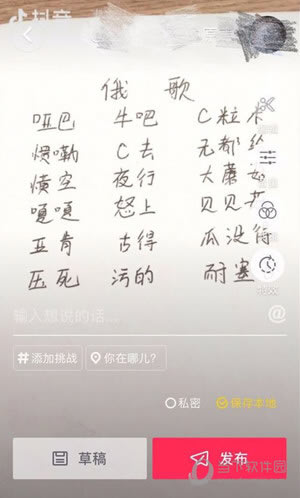 抖音
俄 歌
哑巴 牛吧 C粒
愦嘞 C去 无都
懭空 夜行 大蘑
嘎嘎 怒上 贝贝
亚肯 古得 瓜没得
压死 污的 耐塞
特效
输入想说的话... @
#添加挑战 你在哪儿?
私密 保存本地
草稿 发布
当下软件园